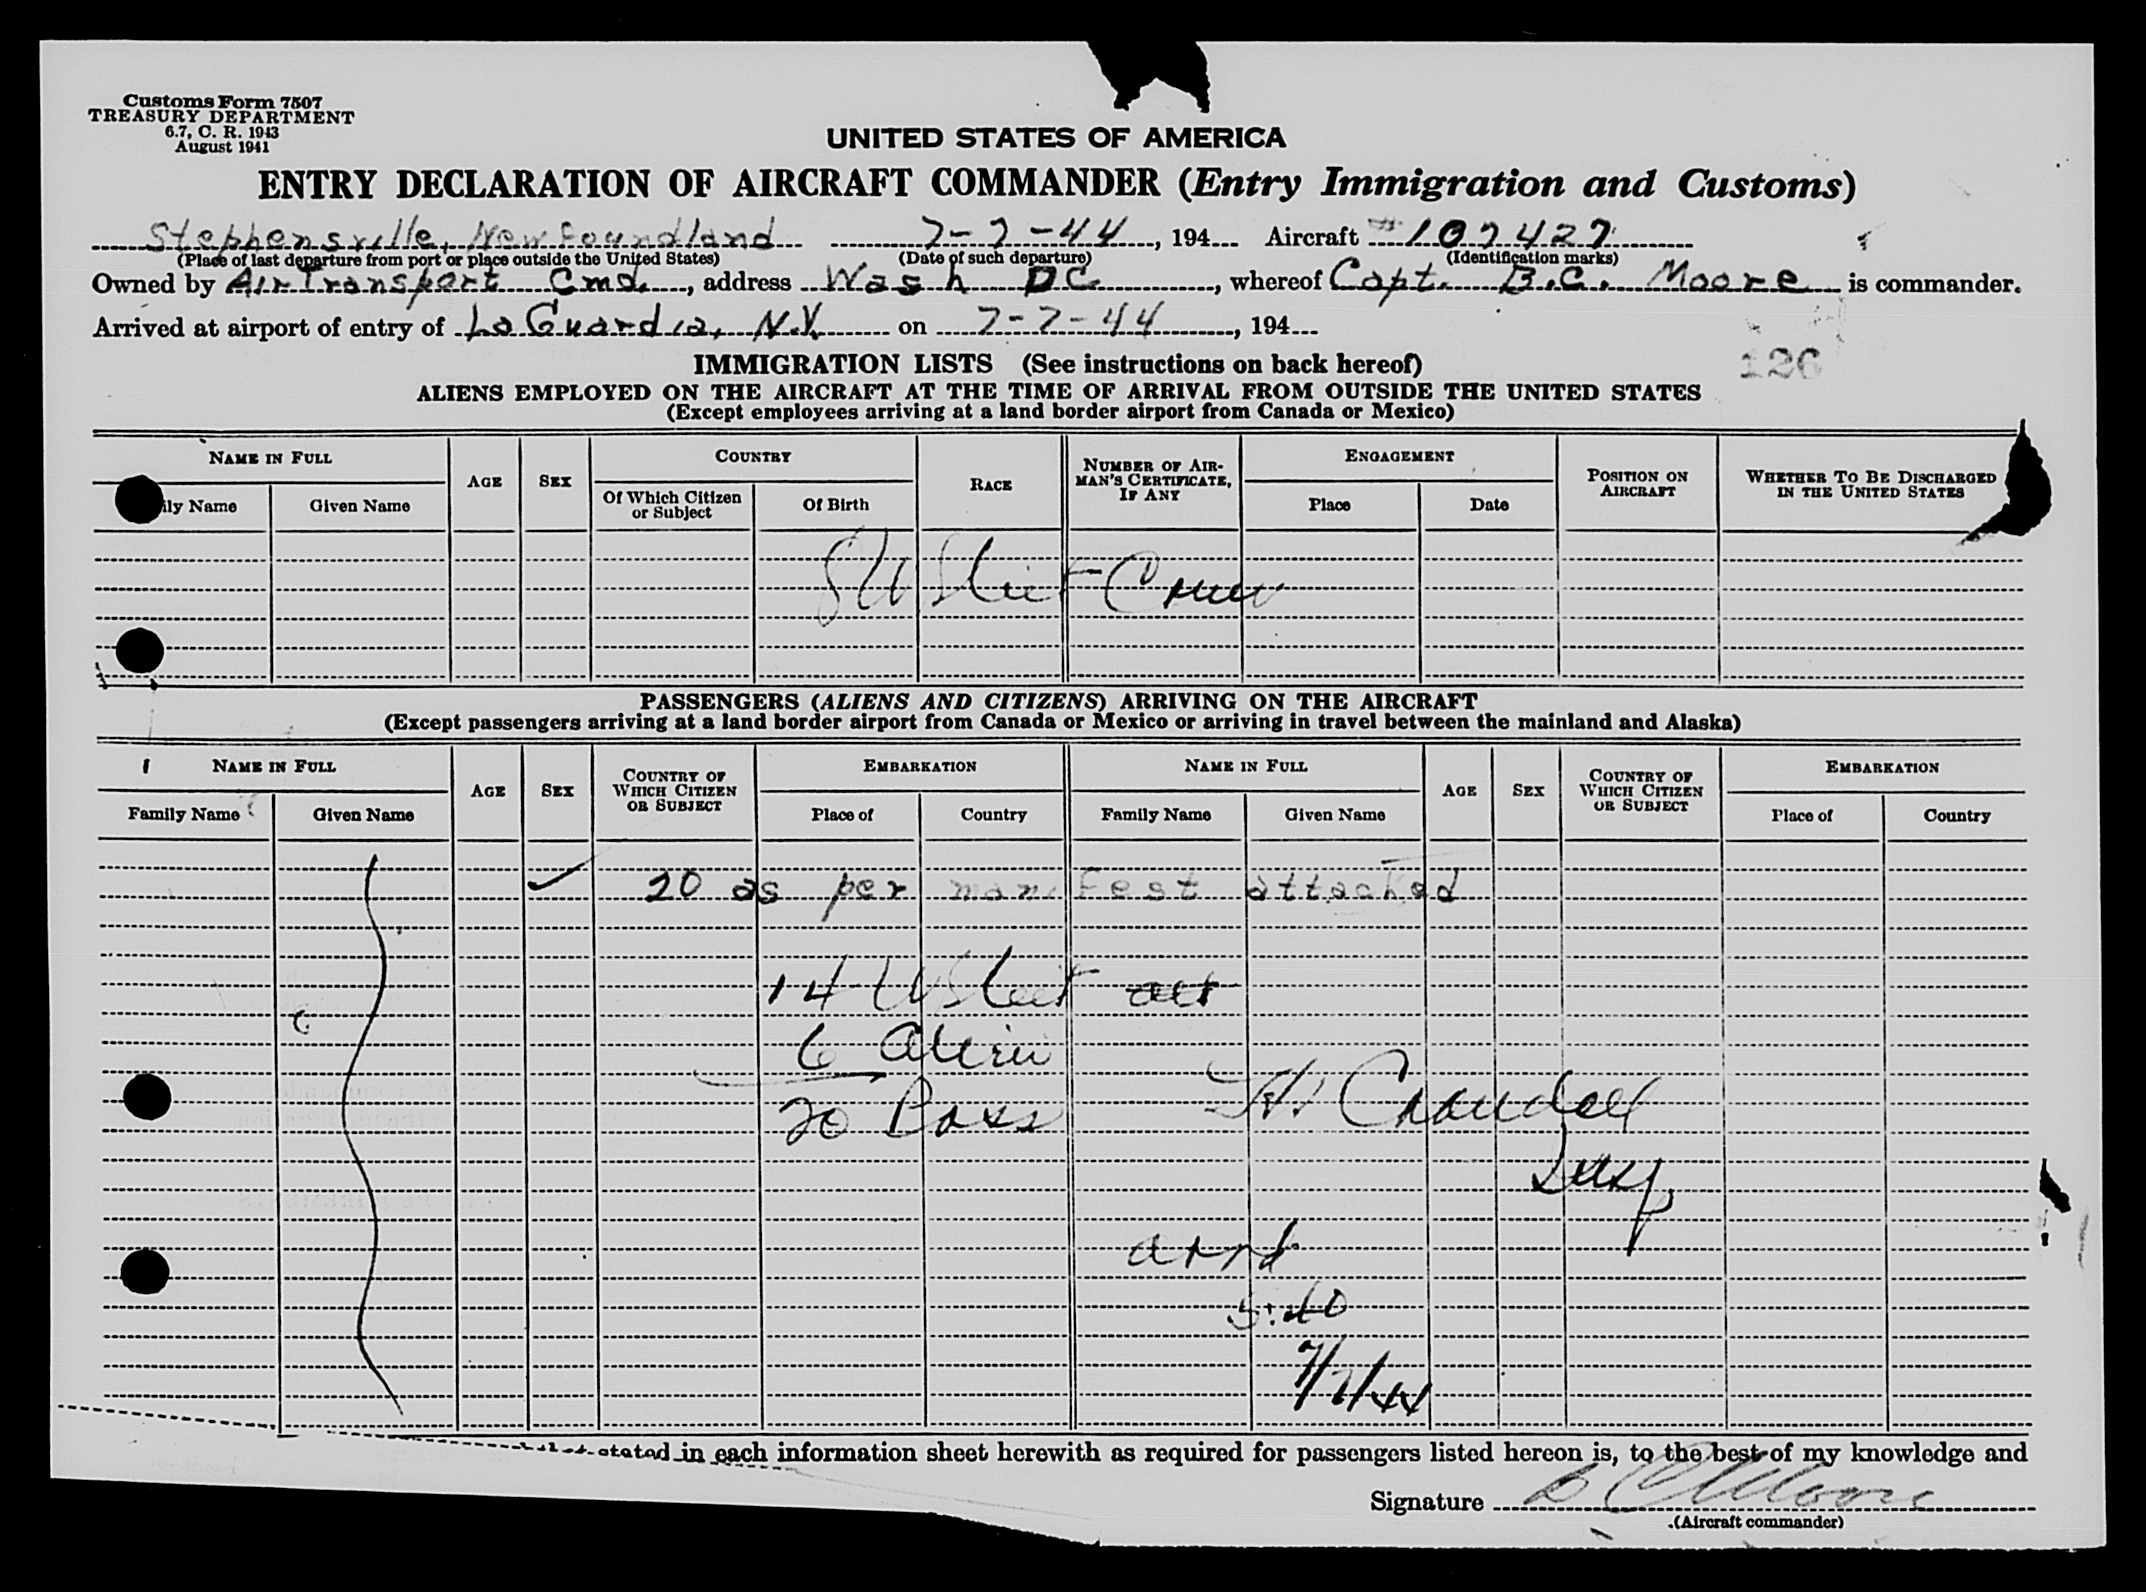 Customs Form 7507
TREASURY DEPARTMENT
6.7, C. R. 1943
August 1941
UNITED STATES OF AMERICA
ENTRY DECLARATION OF AIRCRAFT COMMANDER (Entry Immigration and Customs)
Stephensville, Newfoundland 7-7-44, 194 Aircraft #107427
(Place of last departure from port or place outside the United States) (Date of such departure) (Identification marks)
Owned by Air Transport Cmd., address Wash DC, whereof Capt. B.C. Moore is commander.
Arrived at airport of entry of La Guardia, N.Y. on 7-7-44, 194
126
IMMIGRATION LISTS (See instructions on back hereof)
ALIENS EMPLOYED ON THE AIRCRAFT AT THE TIME OF ARRIVAL FROM OUTSIDE THE UNITED STATES
(Except employees arriving at a land border airport from Canada or Mexico)
NAME IN FULL AGE SEX COUNTRY RACE NUMBER OF AIRMAN'S CERTIFICATE, IF ANY ENGAGEMENT POSITION ON AIRCRAFT WHETHER TO BE DISCHARGED IN THE UNITED STATES
ily Name Given Name Of Which Citizen or Subject Of Birth Place Date
8 US Cit Crew
PASSENGERS (ALIENS AND CITIZENS) ARRIVING ON THE AIRCRAFT
(Except passengers arriving at a land border airport from Canada or Mexico or arriving in travel between the mainland and Alaska)
NAME IN FULL AGE SEX COUNTRY OF WHICH CITIZEN OR SUBJECT EMBARKATION NAME IN FULL AGE SEX COUNTRY OF WHICH CITIZEN OR SUBJECT EMBARKATION
Family Name Given Name Place of Country Family Name Given Name Place of Country
20 as per manifest attached
14 US Cit
6 Alien
20 Pass
Crandall
Insp
arrd
5:40
7/7/44
stated in each information sheet herewith as required for passengers listed hereon is, to the best of my knowledge and
Signature B C Moore
(Aircraft commander)